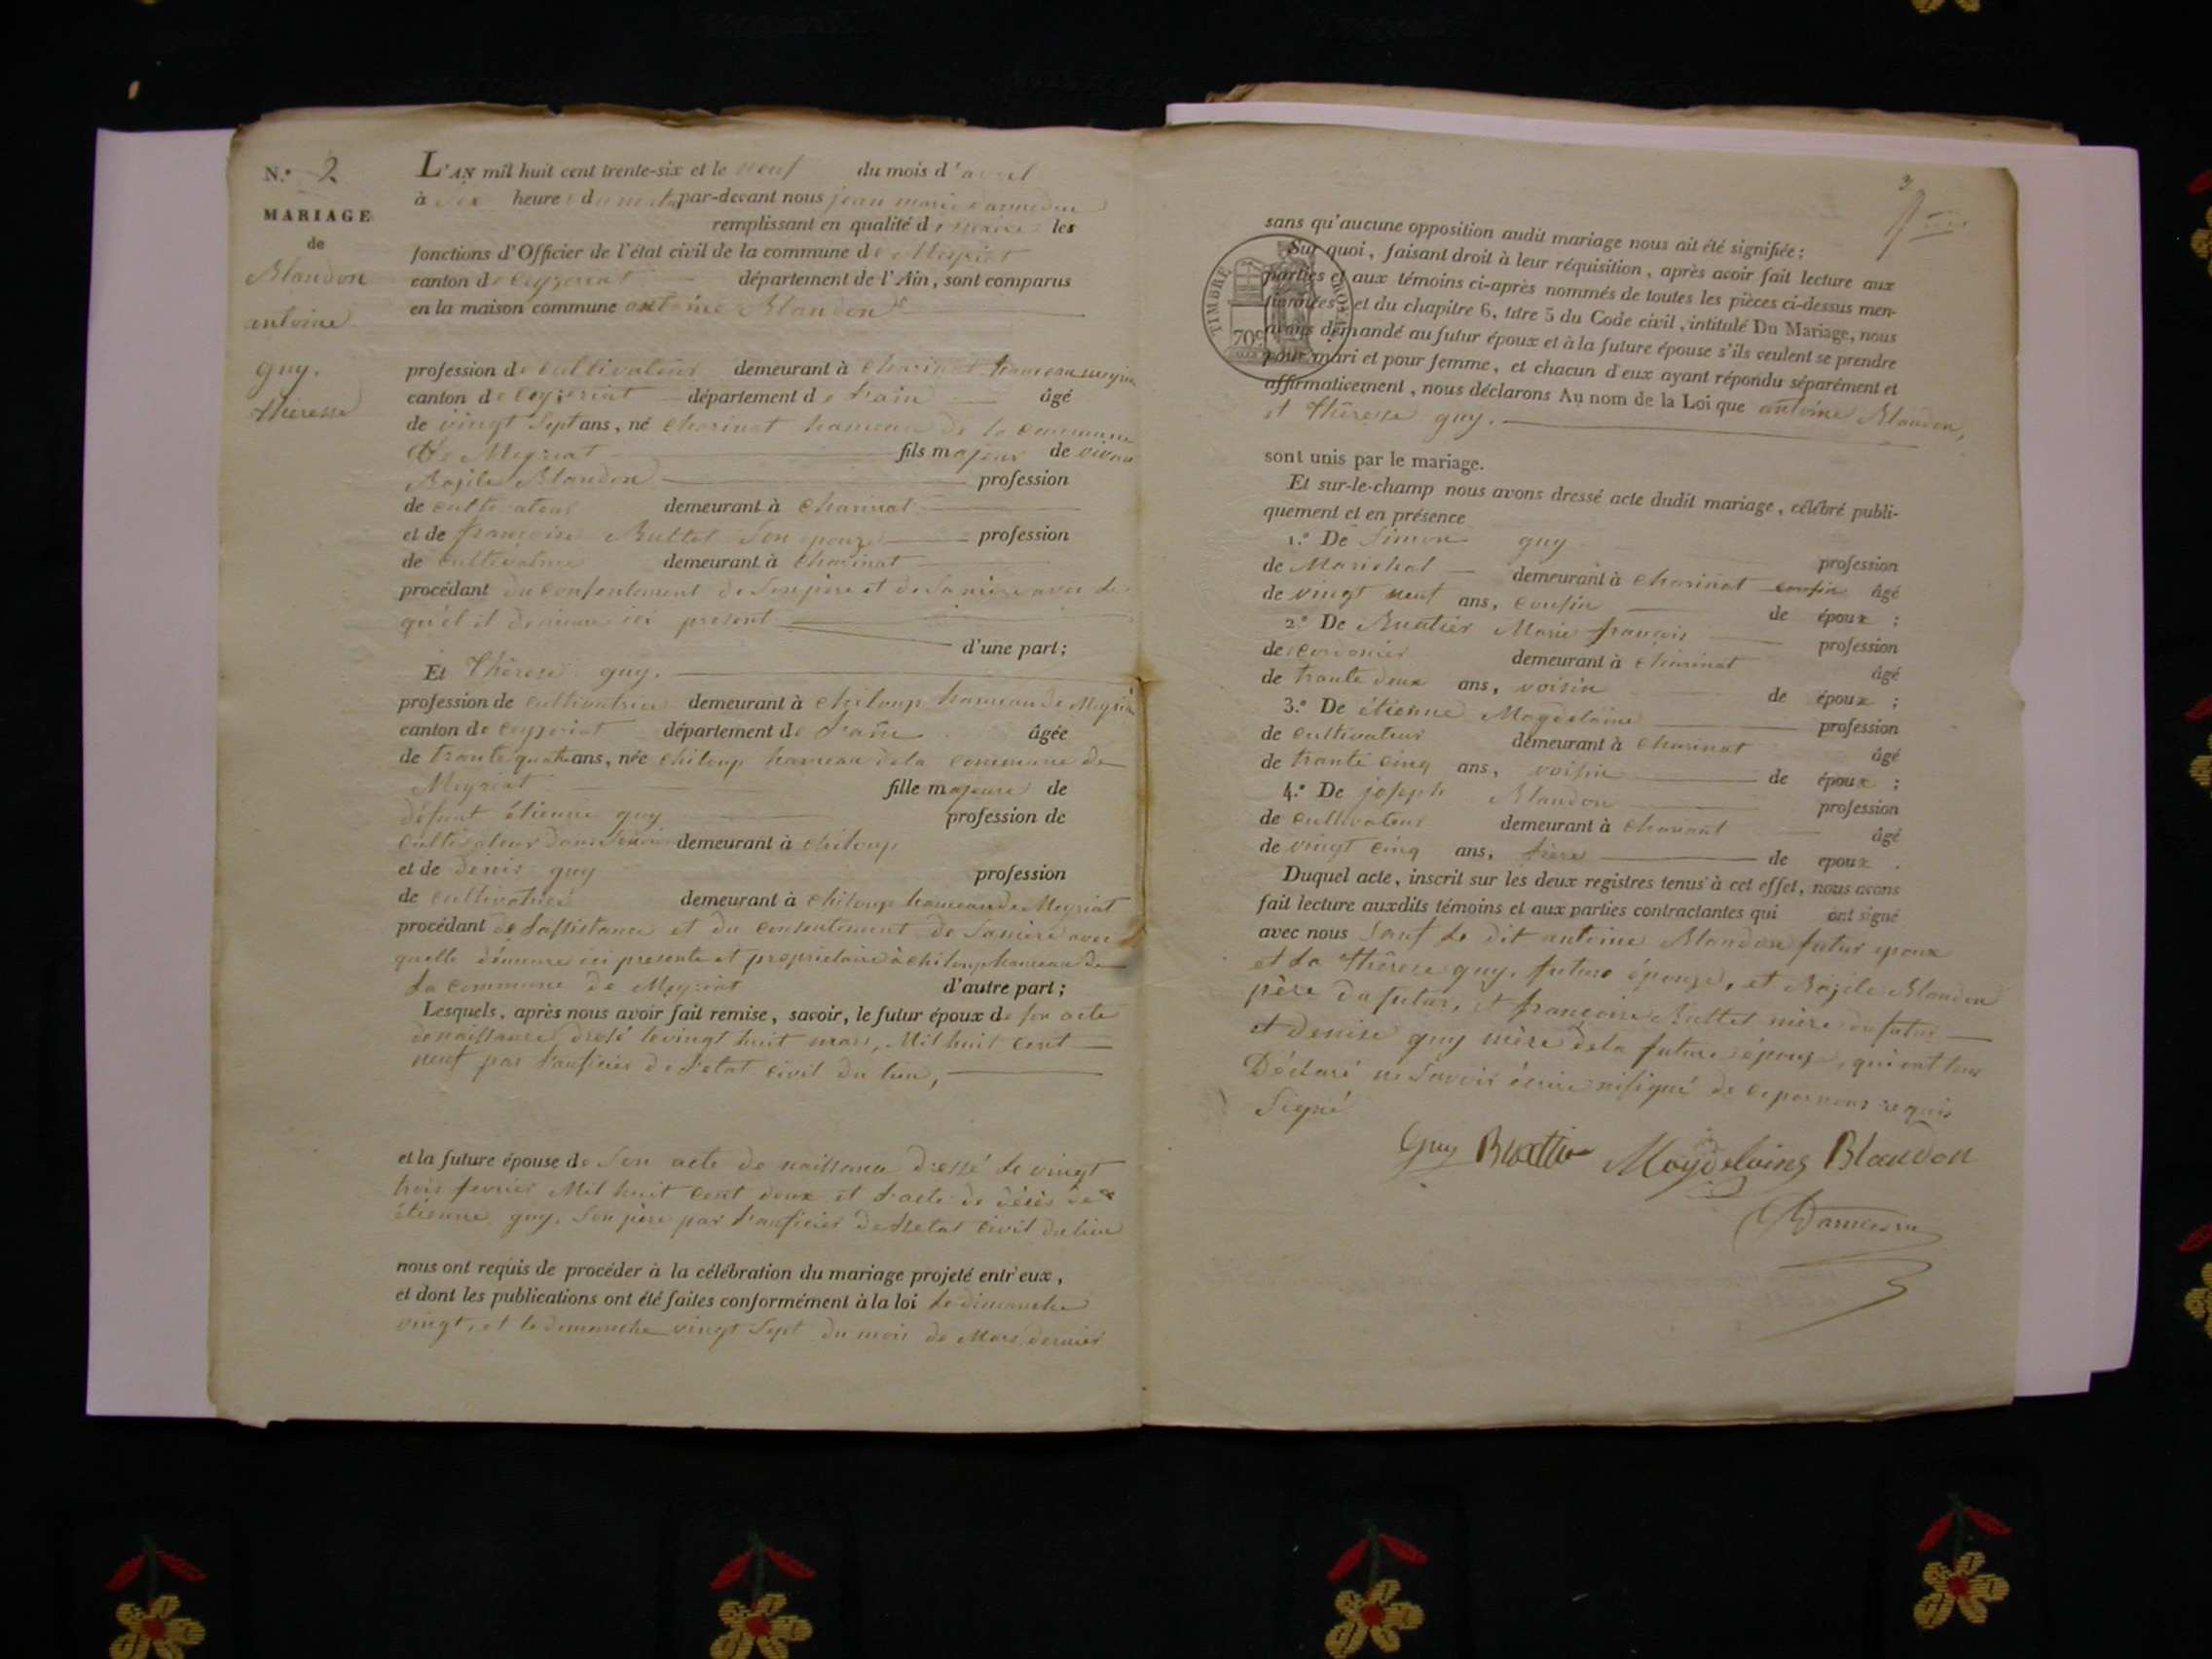 N.° 2
MARIAGE
de
Blandon
antoine
guy.
thèresse
L'AN mil huit cent trente-six et le neuf du mois d'avril
à six heures du matin par-devant nous jean marie
remplissant en qualité de maire les
fonctions d'Officier de l'état civil de la commune de Meyriat
canton de Ceyzeriat département de l'Ain, sont comparus
en la maison commune antoine Blandon
profession de Cultivateur demeurant à Charinat hameau meyria
canton de Ceyzeriat département de L'ain âgé
de vingt Sept ans, né Charinat hameau de la commune
De Meyriat fils majeur de vivan
Bazile Blandon profession
de cultivateur demeurant à Charinat
et de françoise Buttet Son épouze profession
de cultivatrice demeurant à Charinat
procédant du Consentement de Son père et de Sa mère avec Les
qu'el il demeure ici présent
d'une part;
Et Thèrese guy.
profession de Cultivatrice demeurant à Chiloup hameau de Meyria
canton de Ceyzeriat département de L'ain âgée
de trante quatre ans, née Chiloup hameau dela commune de
Meyriat fille majeure de
défunt étienne guy profession de
Cultivateur demeurant à Chiloup
et de Denise guy profession
de Cultivatrice demeurant à Chiloup hameau de Meyriat
procédant de Lassistance et du Consentement de Sa mère avec la
quelle démeure ici présente et propriétaire à Chiloup hameau de
La commune de Meyriat d'autre part;
Lesquels, après nous avoir fait remise, savoir, le futur époux de son acte
de naissance dressé le vingt huit mars, Mil huit Cent
neuf par L'auficier de L'etat Civil du lieu,
et la future épouse de Son acte de naissance dressé Le vingt
trois fevrier Mil huit Cent deux et L'acte de décès de
étienne guy, Son père par L'auficier de L'etat Civil du lieu
nous ont requis de procéder à la célébration du mariage projeté entr'eux,
et dont les publications ont été faites conformément à la loi Le dimanche
vingt, et le dimanche vingt Sept du mois de Mars dernier
3
sans qu'aucune opposition audit mariage nous ait été signifiée;
TIMBRE ROYAL
70c
Sur quoi, faisant droit à leur réquisition, après avoir fait lecture aux
parties et aux témoins ci-après nommés de toutes les pièces ci-dessus men-
tionnées, et du chapitre 6, titre 5 du Code civil, intitulé Du Mariage, nous
avons demandé au futur époux et à la future épouse s'ils veulent se prendre
pour mari et pour femme, et chacun d'eux ayant répondu séparément et
affirmativement, nous déclarons Au nom de la Loi que antoine Blandon,
et thèresse guy.
sont unis par le mariage.
Et sur-le-champ nous avons dressé acte dudit mariage, célébré publi-
quement et en présence
1.° De Simon guy profession
de Marichal demeurant à Charinat cousin âgé
de vingt neuf ans, cousin de époux;
2.° De Buatier Marie françois profession
de cordonier demeurant à Charinat âgé
de trante deux ans, voisin de époux;
3.° De étienne Magdelaine profession
de cultivateur demeurant à Charinat âgé
de trante cinq ans, voisin de époux;
4.° De joseph Blandon profession
de Cultivateur demeurant à Charinat âgé
de vingt cinq ans, frère de époux.
Duquel acte, inscrit sur les deux registres tenus à cet effet, nous avons
fait lecture auxdits témoins et aux parties contractantes qui ont signé
avec nous Sauf Le dit antoine Blandon futur époux
et La thèrese guy, future épouse, et Bazile Blandon
père du futur, et françoise Buttet mère du futur
et Denise guy mère dela future épouze, qui ont tous
Déclaré ne Savoir écrire ni signé de ce par nous requis
Signé
Guy Buattier Magdelaine Blandon